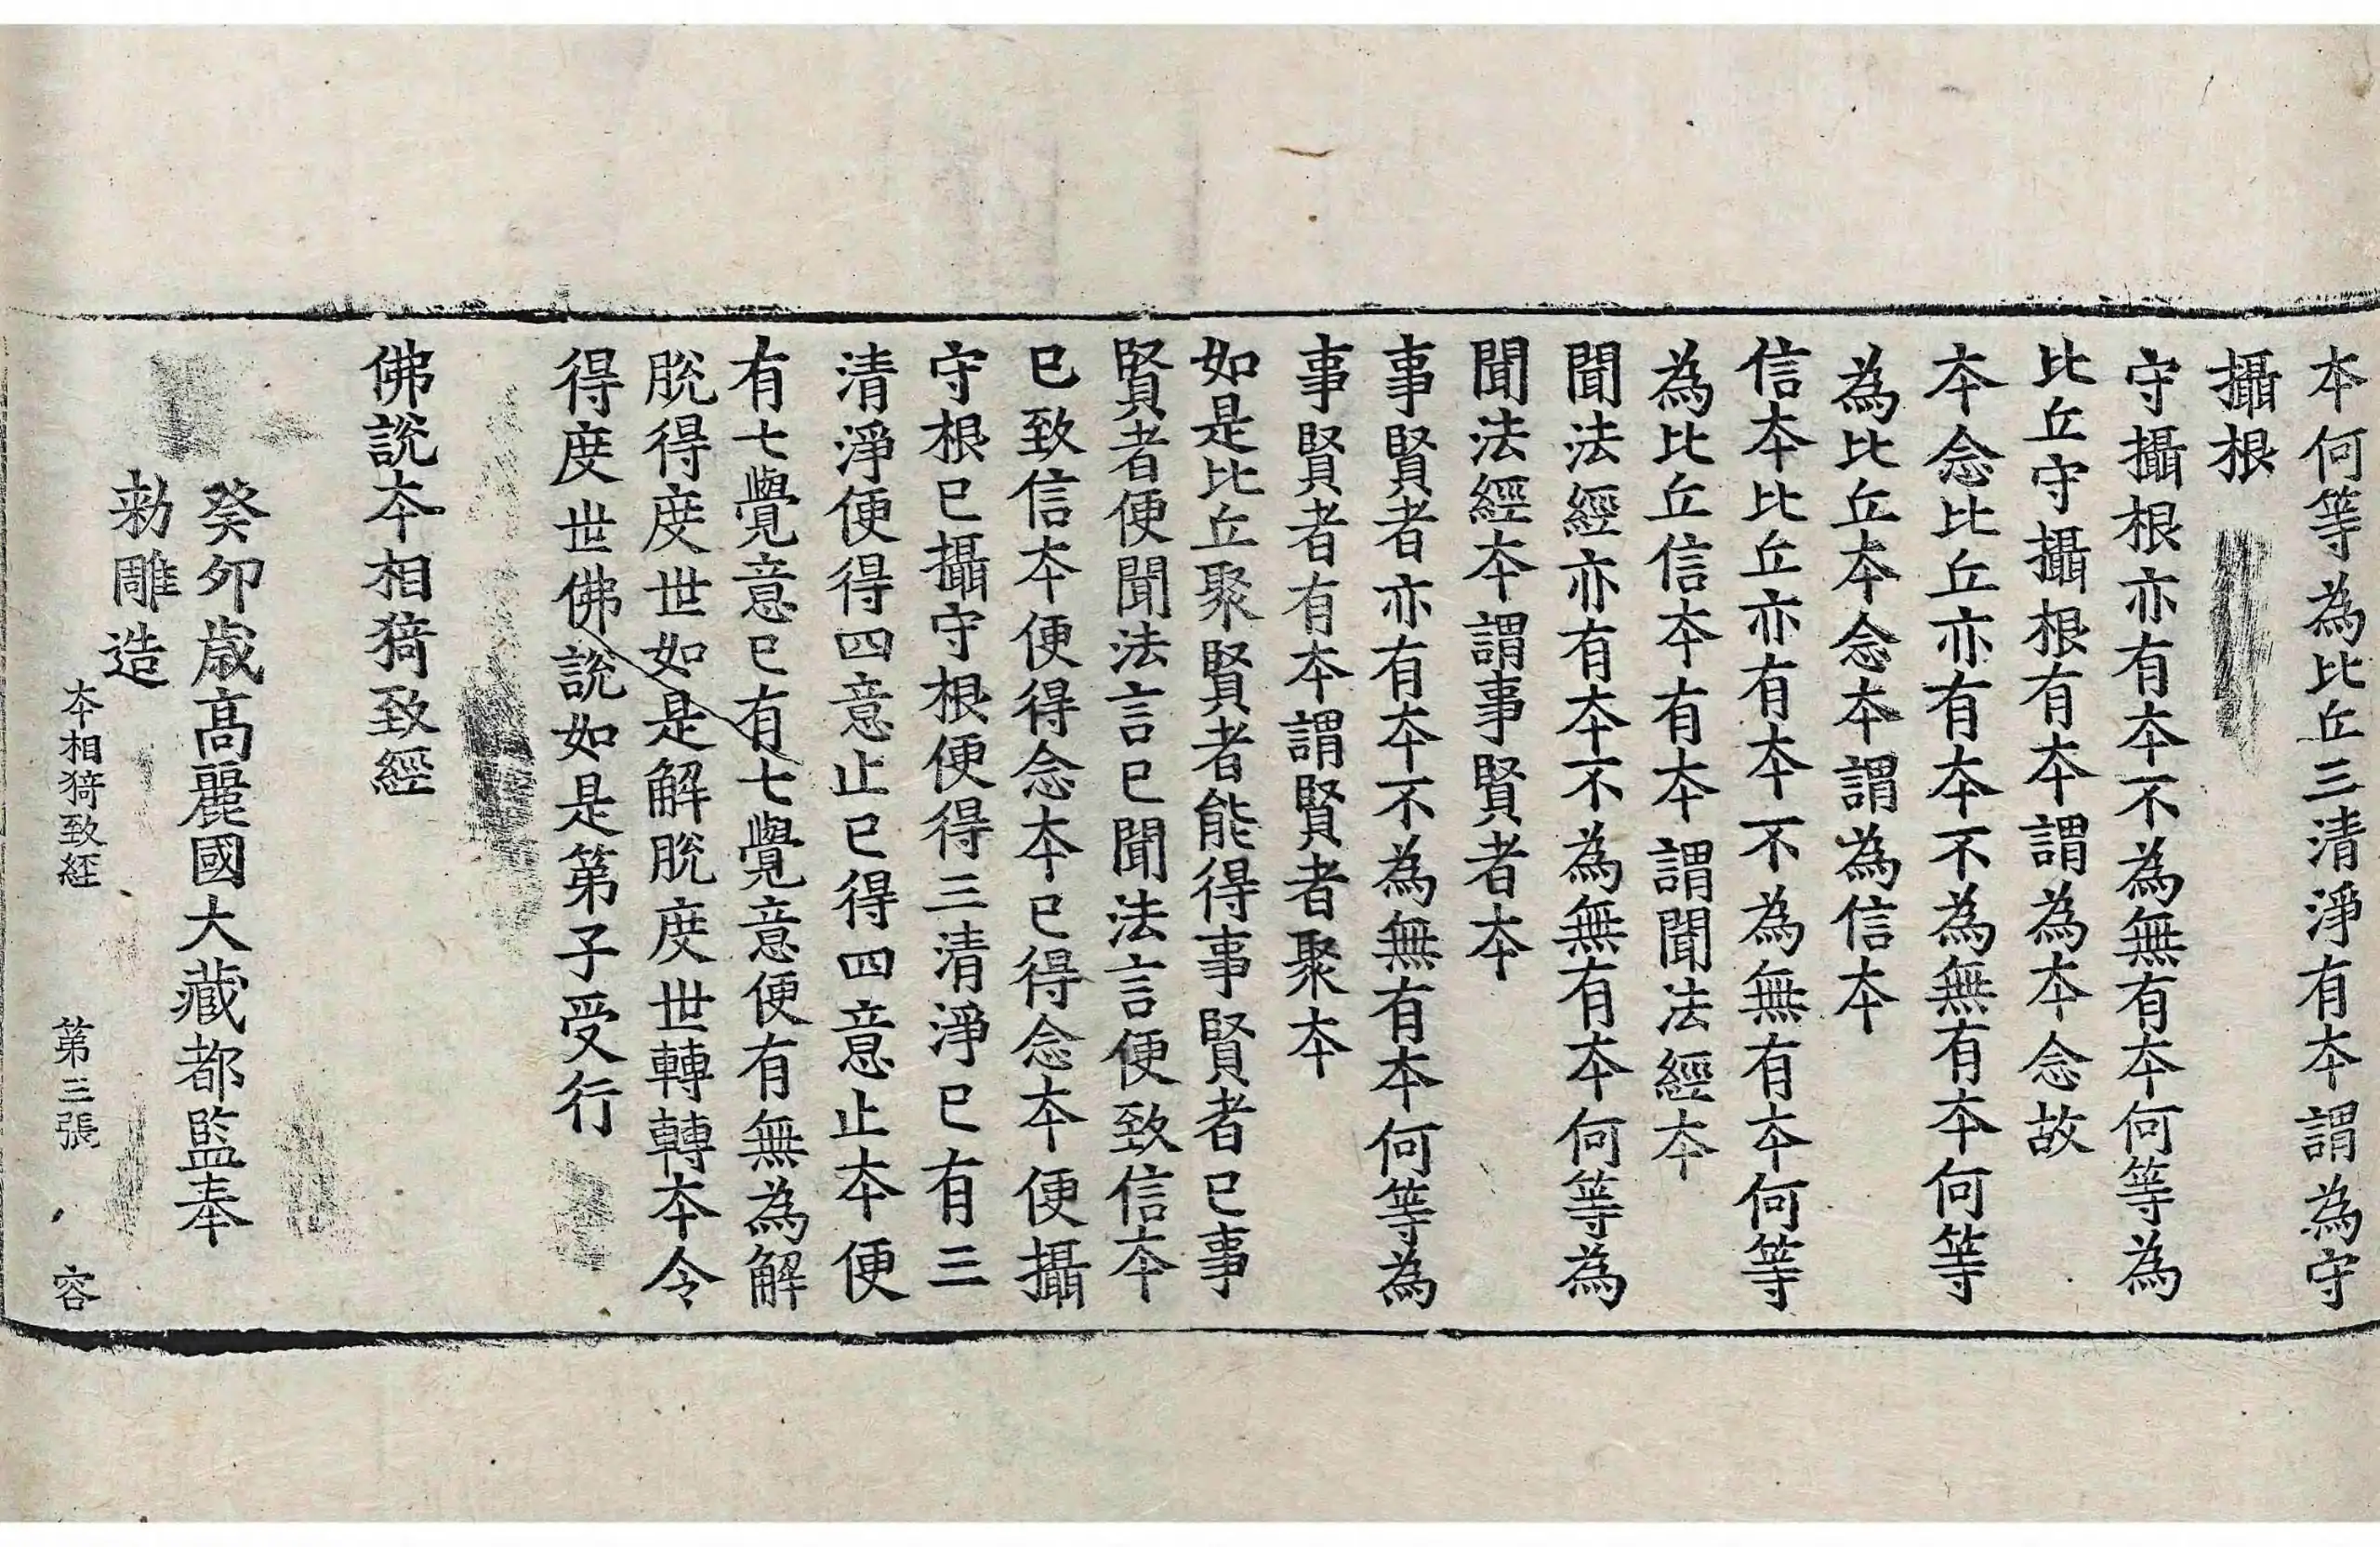 本何等為比丘三清淨有本謂為守
攝根
守攝根亦有本不為無有本何等為
比丘守攝根有本謂為本念故
本念比丘亦有本不為無有本何等
為比丘本念本謂為信本
信本比丘亦有本不為無有本何等
為比丘信本有本謂聞法經本
聞法經亦有本不為無有本何等為
聞法經本謂事賢者本
事賢者亦有本不為無有本何等為
事賢者有本謂賢者聚本
如是比丘聚賢者能得事賢者已事
賢者便聞法言已聞法言便致信本
已致信本便得念本已得念本便攝
守根已攝守根便得三清淨已有三
清淨便得四意止已得四意止本便
有七覺意已有七覺意便有無為解
脫得度世如是解脫度世轉轉本令
得度世佛說如是第子受行
佛說本相猗致經
癸卯歲高麗國大藏都監奉
勑雕造
本相猗致經 第三張 容